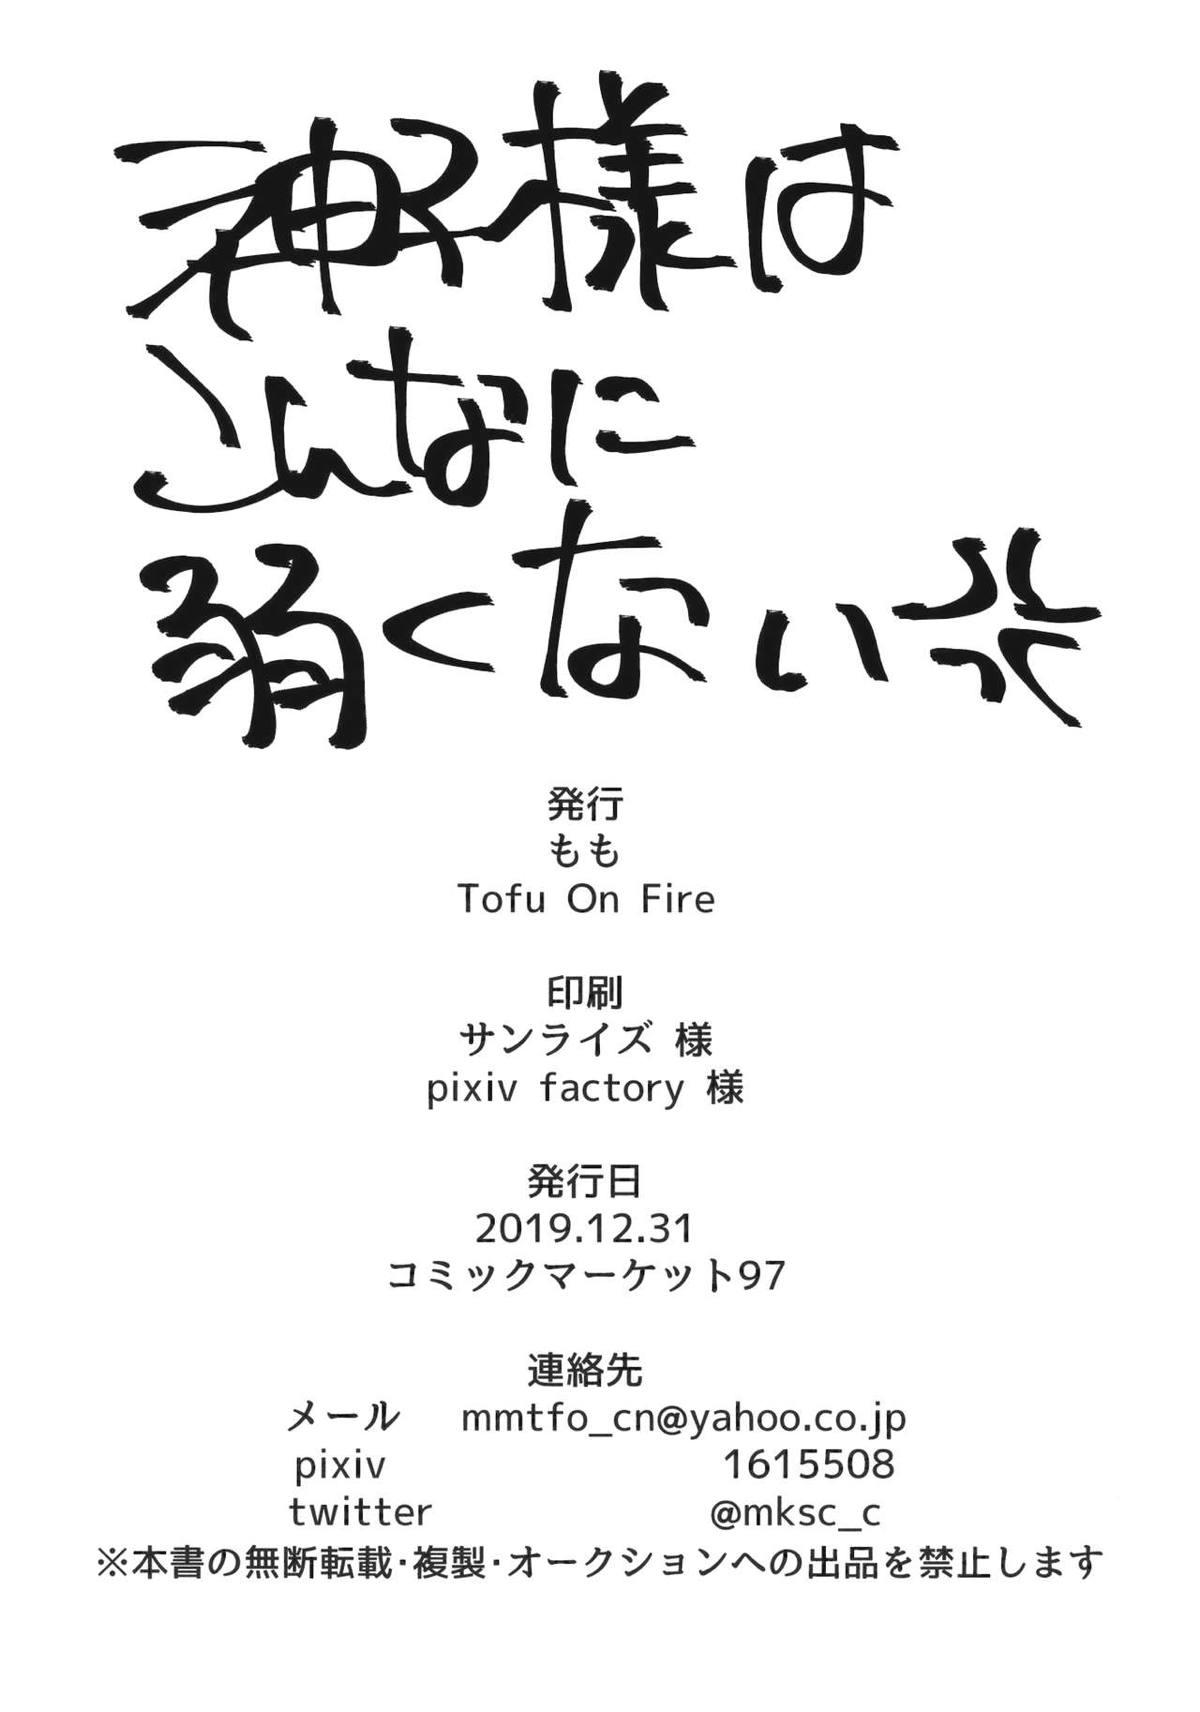 神子様は
こんなに
弱くない💢
発行
もも
Tofu On Fire
印刷
サンライズ 様
pixiv factory 様
発行日
2019.12.31
コミックマーケット97
連絡先
メール mmtfo_cn@yahoo.co.jp
pixiv 1615508
twitter @mksc_c
※本書の無断転載・複製・オークションへの出品を禁止します